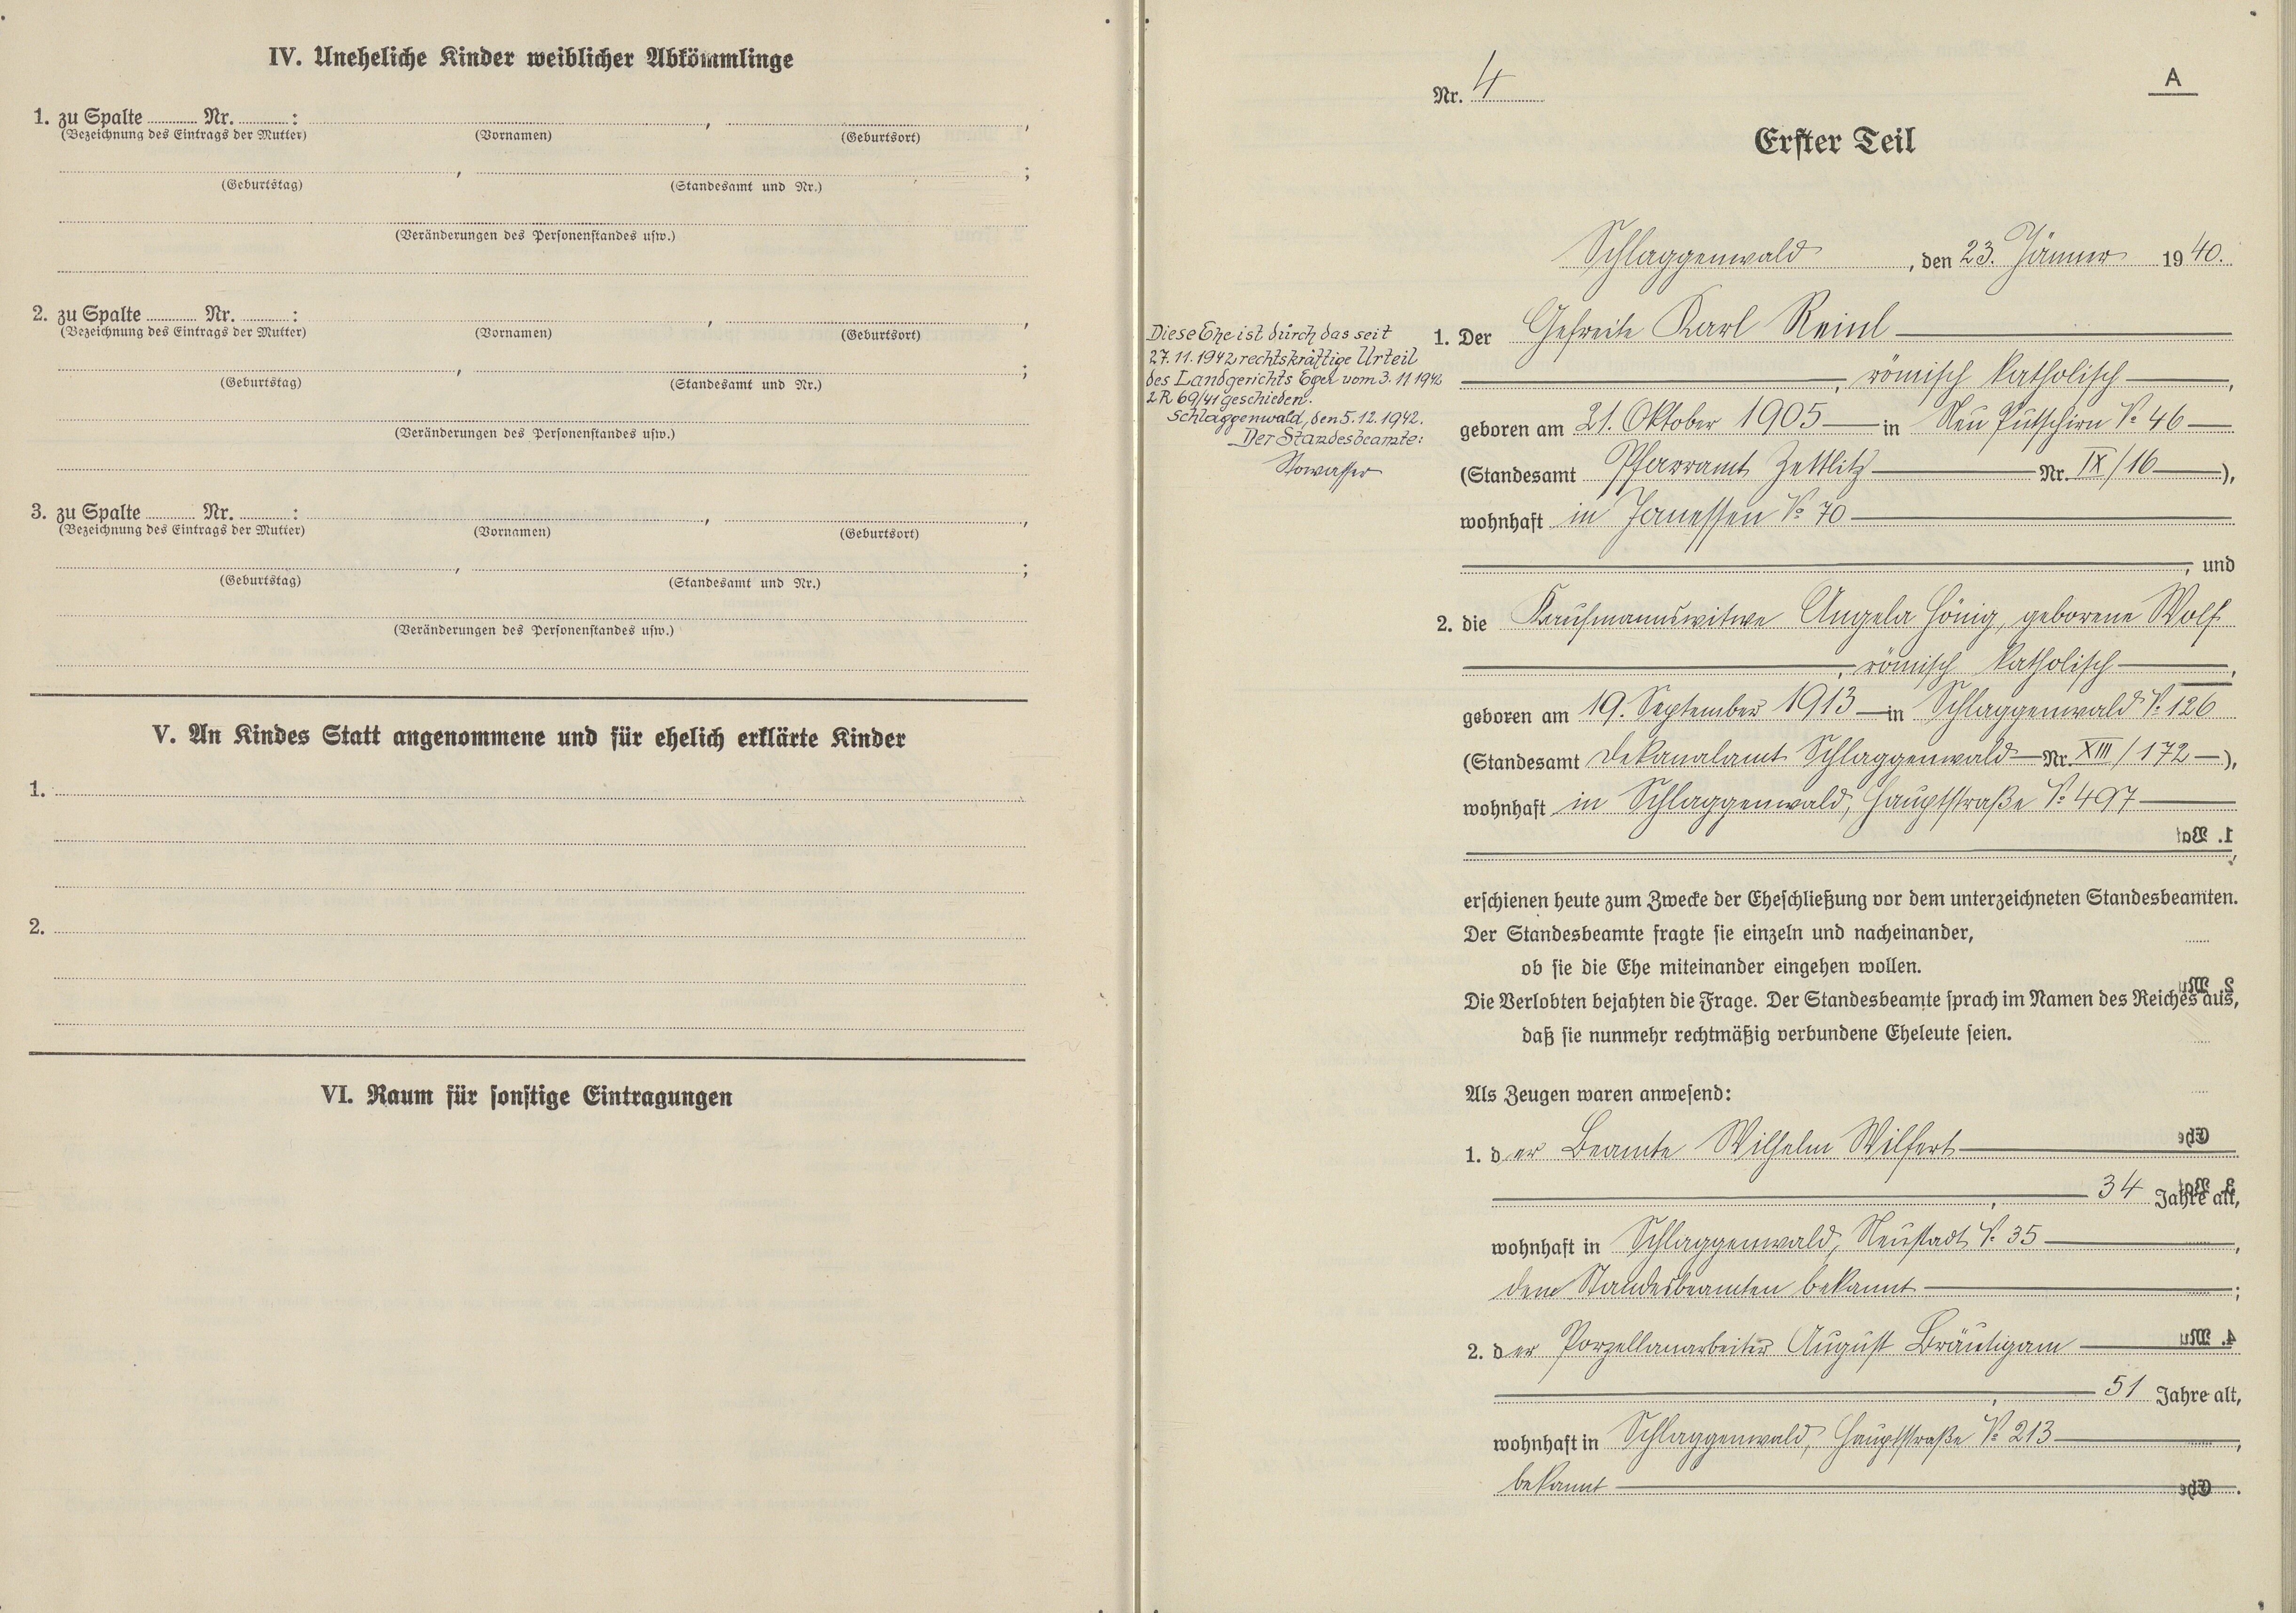 IV. Uneheliche Kinder weiblicher Abkömmlinge
1. zu Spalte ........ Nr. ........ : ........ , ........ ,
(Bezeichnung des Eintrags der Mutter) (Vornamen) (Geburtsort)
........ , ........ ;
(Geburtstag) (Standesamt und Nr.)
(Veränderungen des Personenstandes usw.)
2. zu Spalte ........ Nr. ........ : ........ , ........ ,
(Bezeichnung des Eintrags der Mutter) (Vornamen) (Geburtsort)
........ , ........ ;
(Geburtstag) (Standesamt und Nr.)
(Veränderungen des Personenstandes usw.)
3. zu Spalte ........ Nr. ........ : ........ , ........ ,
(Bezeichnung des Eintrags der Mutter) (Vornamen) (Geburtsort)
........ , ........ ;
(Geburtstag) (Standesamt und Nr.)
(Veränderungen des Personenstandes usw.)
V. An Kindes Statt angenommene und für ehelich erklärte Kinder
1.
2.
VI. Raum für sonstige Eintragungen
A
Nr. 4
Erster Teil
Schlaggenwald, den 23. Jänner 1940.
Diese Ehe ist durch das seit
27.11.1942 rechtskräftige Urteil
des Landgerichts Eger vom 3.11.1942
2R 69/41 geschieden.
Schlaggenwald, den 5.12.1942.
Der Standesbeamte:
Stowasser
1. Der Gefreite Karl Reinl
, römisch katholisch ,
geboren am 21. Oktober 1905 in Neu Putschirn № 46
(Standesamt Pfarramt Zettlitz Nr. IX/16),
wohnhaft in Janessen № 70
, und
2. die Kaufmannswitwe Angela Hönig, geborene Wolf
, römisch katholisch ,
geboren am 19. September 1913 in Schlaggenwald № 126
(Standesamt Dekanalamt Schlaggenwald Nr. XIII/172),
wohnhaft in Schlaggenwald, Hauptstraße № 497
,
erschienen heute zum Zwecke der Eheschließung vor dem unterzeichneten Standesbeamten.
Der Standesbeamte fragte sie einzeln und nacheinander,
ob sie die Ehe miteinander eingehen wollen.
Die Verlobten bejahten die Frage. Der Standesbeamte sprach im Namen des Reiches aus,
daß sie nunmehr rechtmäßig verbundene Eheleute seien.
Als Zeugen waren anwesend:
1. der Beamte Wilhelm Wilfert
, 34 Jahre alt,
wohnhaft in Schlaggenwald, Neustadt № 35 ,
dem Standesbeamten bekannt ;
2. der Porzellanarbeiter August Bräutigam
, 51 Jahre alt,
wohnhaft in Schlaggenwald, Hauptstraße № 213 ,
bekannt .